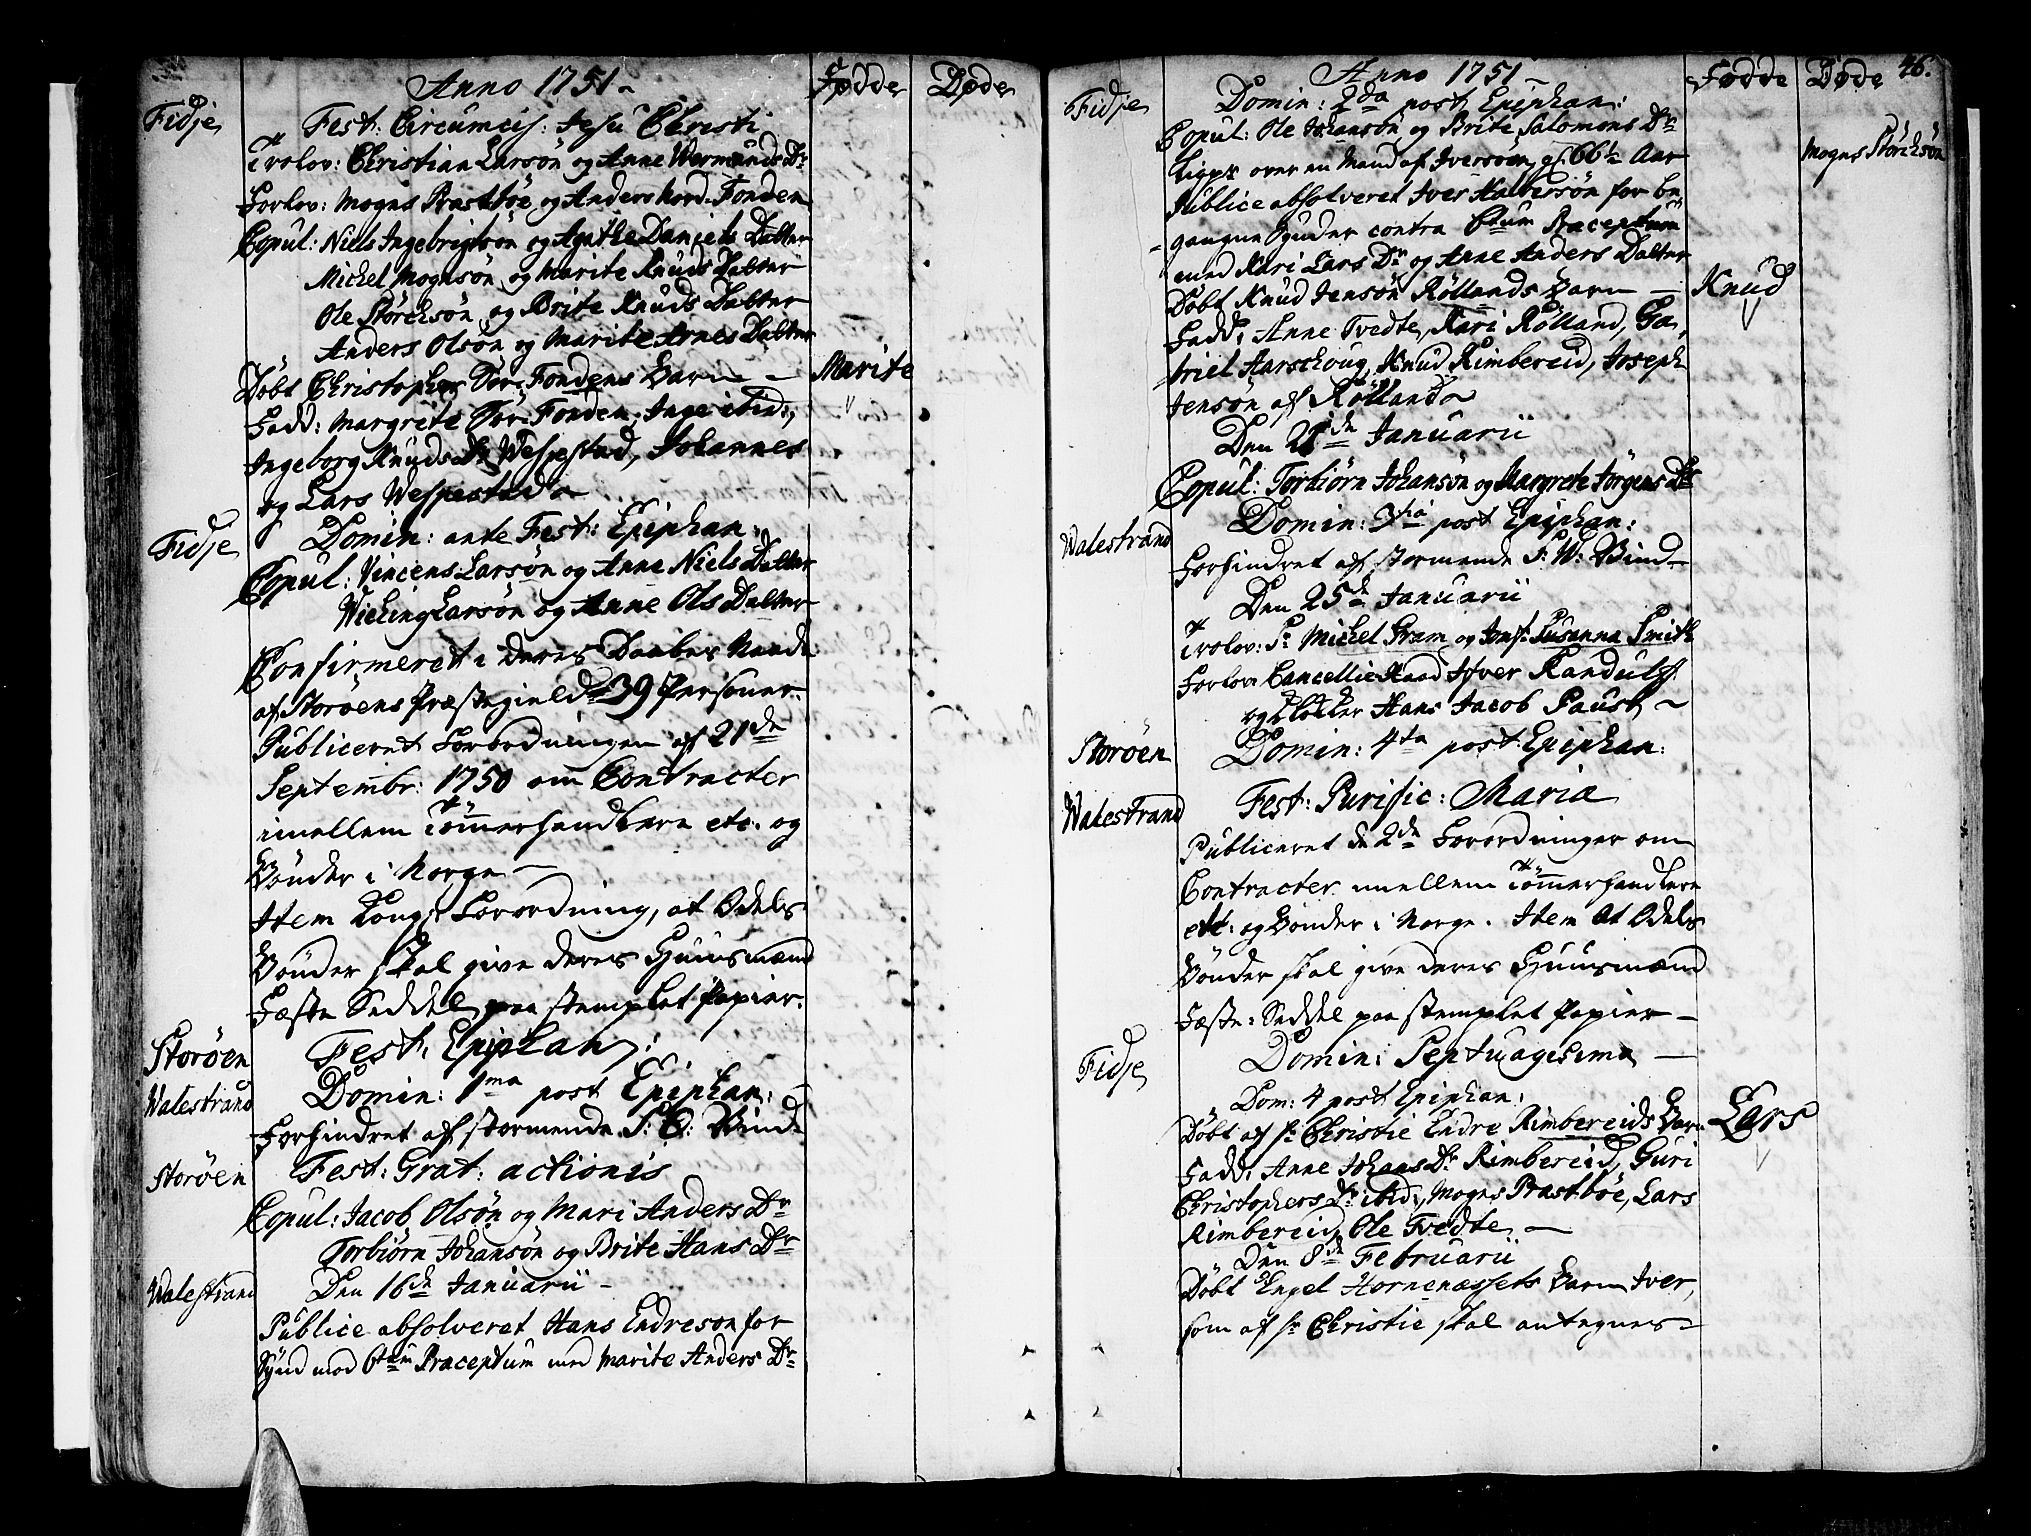 Anno 1751
Fødde
Døde
Fidje
Fest: Circumcis: Jesu Christi
Trolov: Christian Larsøn og Anne Wermunds Dr
Forlov: Mogns Præstbøe og Anders Nord-Fonden
Copul: Niels Ingebrigtsøn og Agathe Daniels Datter
Michel Mognsøn og Marite Knuds Datter
Ole Störchsön og Brite Knuds Datter
Anders Olsön og Marite Arnes Datter
Döbt Christopher Sör-Fondens Barn
Marite
Fadd: Margrete Sör-Fonden, Inge ibid:,
Ingeborg Knuds Dr Wespestad, Johannes
og Lars Wespestad
Fidje
Domin: ante Fest: Epiphan:
Copul: Vincens Larsøn og Anne Niels Datter
Wiching Larsøn og Anne Ols Datter
Confirmeret i deres Daabes Naade
af Storøens Præstegield 39 Personer
Publiceret Forordningen af 21de
Septembr: 1750 om Contracter
imellem Tömmerhandlere etc. og
Bönder i Norge
Item Kong: Forordning, at Odels
Bönder skal give deres Huusmænd
Fæste Seddel paa stemplet Papier.
Storøen
Fest: Epiphan:
Walestrand
Domin: 1ma post Epiphan:
Forhindret af stormende S: O: Vind
Storöen
Fest: Grat: actionis
Copul: Jacob Olsön og Mari Anders Dr
Torbiörn Johansön og Brite Hans Dr
Walestrand
Den 16de Januarii
Publice absolveret Hans Endresøn for
Synd mod 6tum Præceptum med Marite Anders Dr
46.
Anno 1751
Fødde
Døde
Fidje
Domin: 2da post Epiphan:
Copul: Ole Johansøn og Brite Salomons Dr
Ligpr over en Mand af Iversöen, gl. 66½ Aar
Mogns Störchsön
Publice absolveret Iver Halversön for be
gangne Synder contra 6tum Præceptum
med Kari Lars Dr og Anne Anders Datter
Döbt Knud Jensön Röllands Barn
Knud
Fadd: Anne Tvedte, Kari Rölland, Ga,
briel Aarschoug, Knud Rimbereid, Joseph
Jensön af Rölland
Den 21de Januarii
Copul: Torbiörn Johansön og Margrete Jörgens Dr
Walestrand
Domin: 3tia post Epiphan:
Forhindret af stormende S: W: Vind
Den 25de Januarii
Trolov: Sr Michel Gram og Jmfr Susanna Smith
Forlov: Cancellie Raad Iver Randulff
og Klokker Hans Jacob Paust
Storöen
Domin: 4ta post Epiphan:
Walestrand
Fest: Purific: Mariæ
Publiceret de 2de Forordninger om
Contracter imellem Tömmerhandlere
etc: og Bönder i Norge. Item At Odels
Bönder skal give deres Huusmænd
Fæste-Seddel paa stemplet Papier
Fidje
Domin: Septuagesima
Dom: 4 post Epiphan:
Döbt af Hr Christie Endre Rimbereids Barn
Lars
Fadd: Anne Johans Dr Rimbereid, Guri
Christophers Dr ibid:, Mogns Præstböe, Lars
Rimbereid, Ole Tvedte.
Den 8de Februarii
Döbt Engel Hornenæssets Barn Iver,
som af Hr Christie skal antegnes